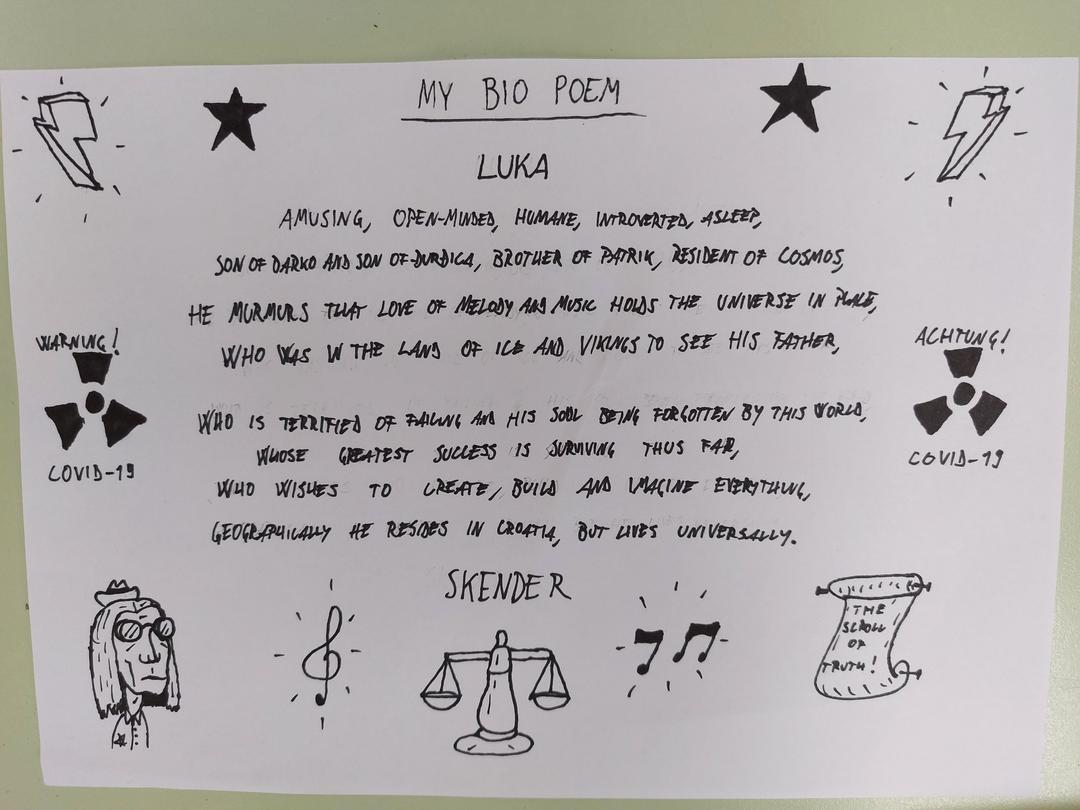 MY BIO POEM
LUKA
AMUSING, OPEN-MINDED, HUMANE, INTROVERTED, ASLEEP,
SON OF DARKO AND SON OF DURDICA, BROTHER OF PATRIK, RESIDENT OF COSMOS,
HE MURMURS THAT LOVE OF MELODY AND MUSIC HOLDS THE UNIVERSE IN PLACE,
WHO WAS IN THE LAND OF ICE AND VIKINGS TO SEE HIS FATHER,
WARNING!
COVID-19
ACHTUNG!
COVID-19
WHO IS TERRIFIED OF FAILING AND HIS SOUL BEING FORGOTTEN BY THIS WORLD,
WHOSE GREATEST SUCCESS IS SURVIVING THUS FAR,
WHO WISHES TO CREATE, BUILD AND IMAGINE EVERYTHING,
GEOGRAPHICALLY HE RESIDES IN CROATIA, BUT LIVES UNIVERSALLY.
SKENDER
THE
SCROLL
OF
TRUTH!